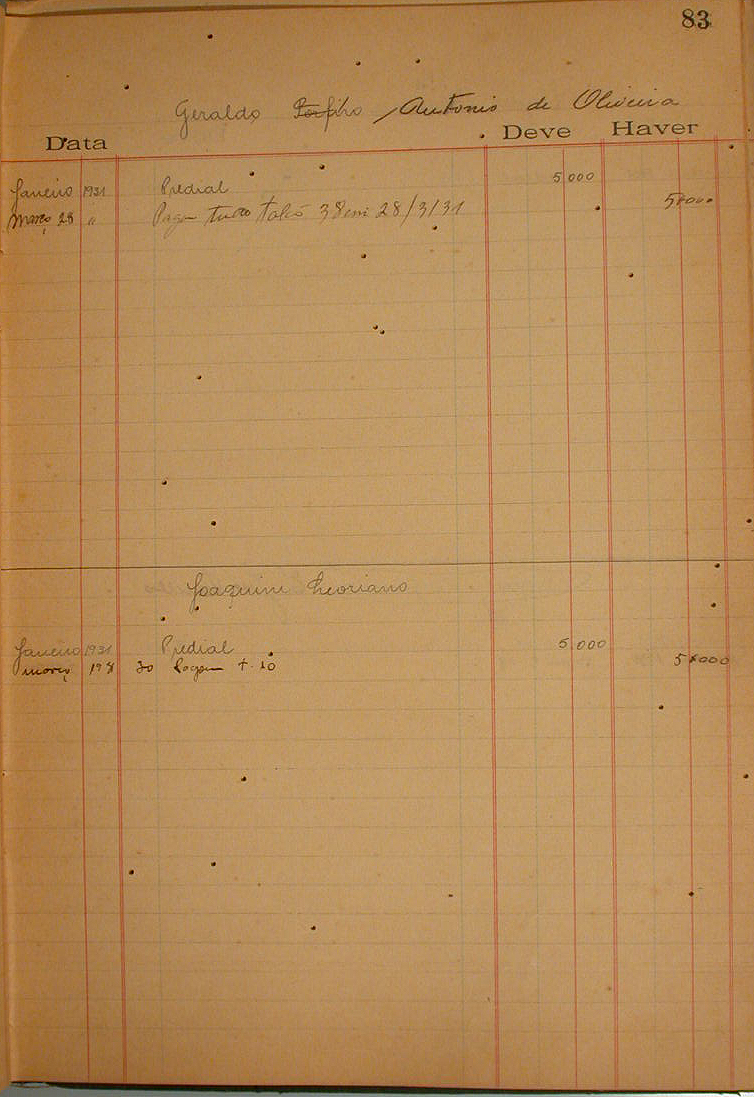 83
Geraldo Porfirio Antonio de Oliveira
Data Deve Haver
Janeiro 1931 Predial 5,000
Março 28 " Pagou tudo talão 38 em 28/3/31 5$000
Joaquim
Janeiro 1931 Predial 5,000
março 1931 30 Pagou t. 20 5$000